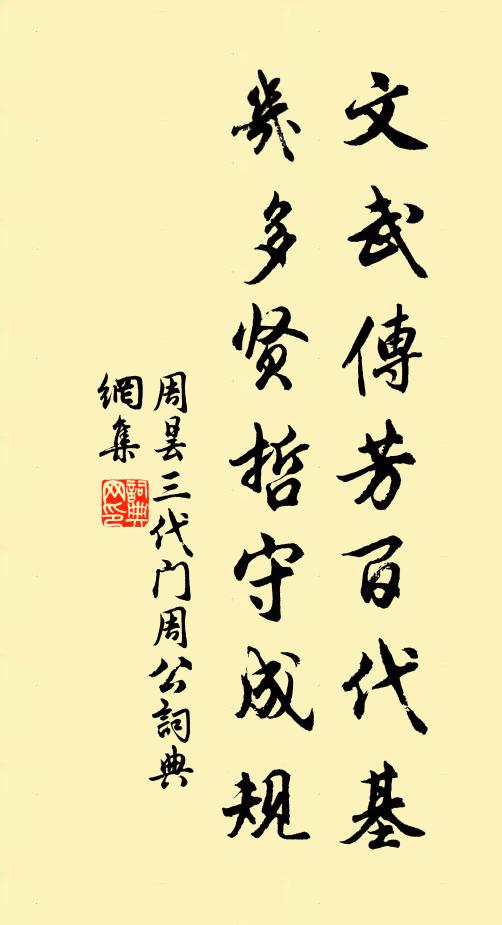 文武傳芳百代基
幾多贤哲守成规
周昙三代门周公詞典
網集
詞典
网印